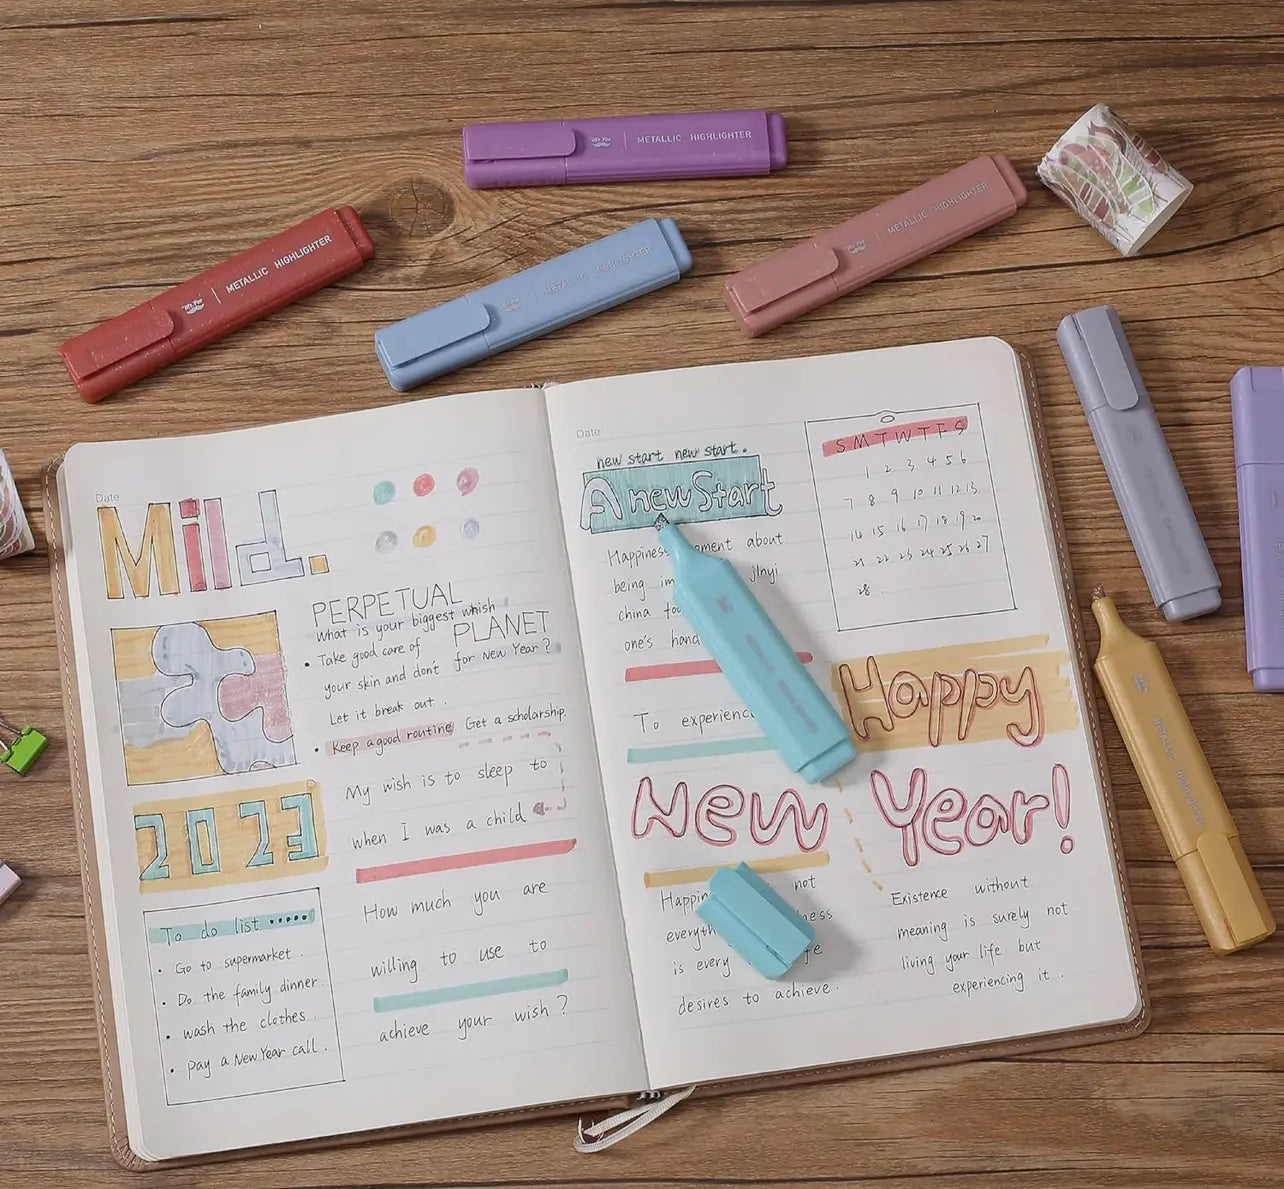 Mr. Pen METALLIC HIGHLIGHTER
Mr. Pen METALLIC HIGHLIGHTER
METALLIC HIGHLIGHTER
Mr. Pen METALLIC HIGHLIGHTER
METALLIC HIGHLIGHTER
Date
Mild.
PERPETUAL
What is your biggest which
PLANET
• Take good care of
for New Year?
your skin and don't
Let it break out.
• Keep a good routine Get a scholarship.
My wish is to sleep to
when I was a child
2023
How much you are
willing to use to
achieve your wish?
To do list •••••
• Go to supermarket.
• Do the family dinner.
• wash the clothes.
• pay a New Year call.
Date
new start new start.
A new Start
Happiness about
being
china
one's
To
S M T W T F S
1 2 3 4 5 6
7 8 9 10 11 12 13
14 15 16 17 18 19 20
21 22 23 24 25 26 27
28.
Happy
New Year!
not
is every
desires to achieve.
Existence without
meaning is surely not
living your life but
experiencing it.